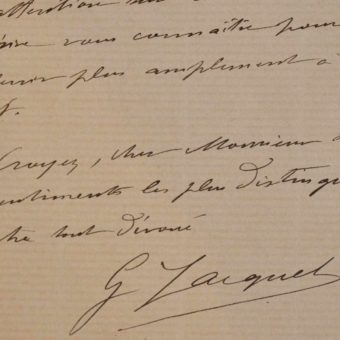 attention sur
désire vous connaître pour
tenir plus amplement à
Croyez, cher Monsieur à
sentiments les plus distingu
tre tout dévoué
G Jacquet